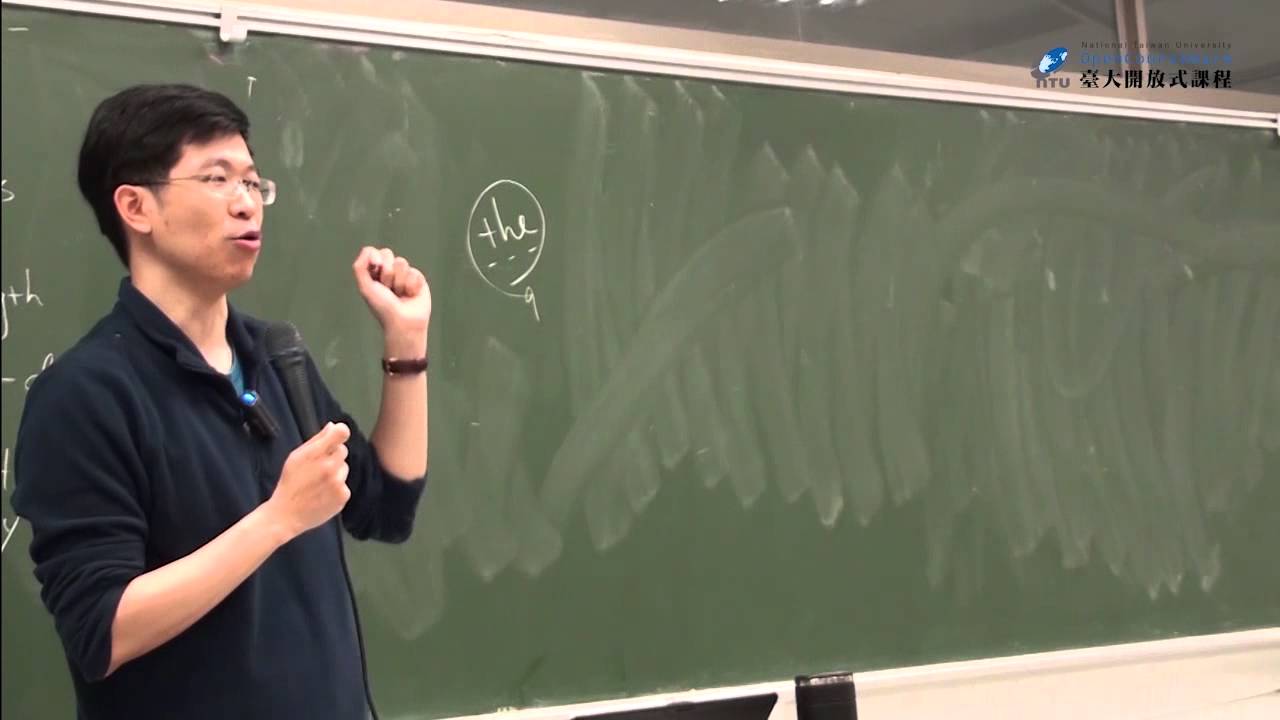 National Taiwan University
OpenCourseWare
NTU 臺大開放式課程
T
s
gth
the
a
y